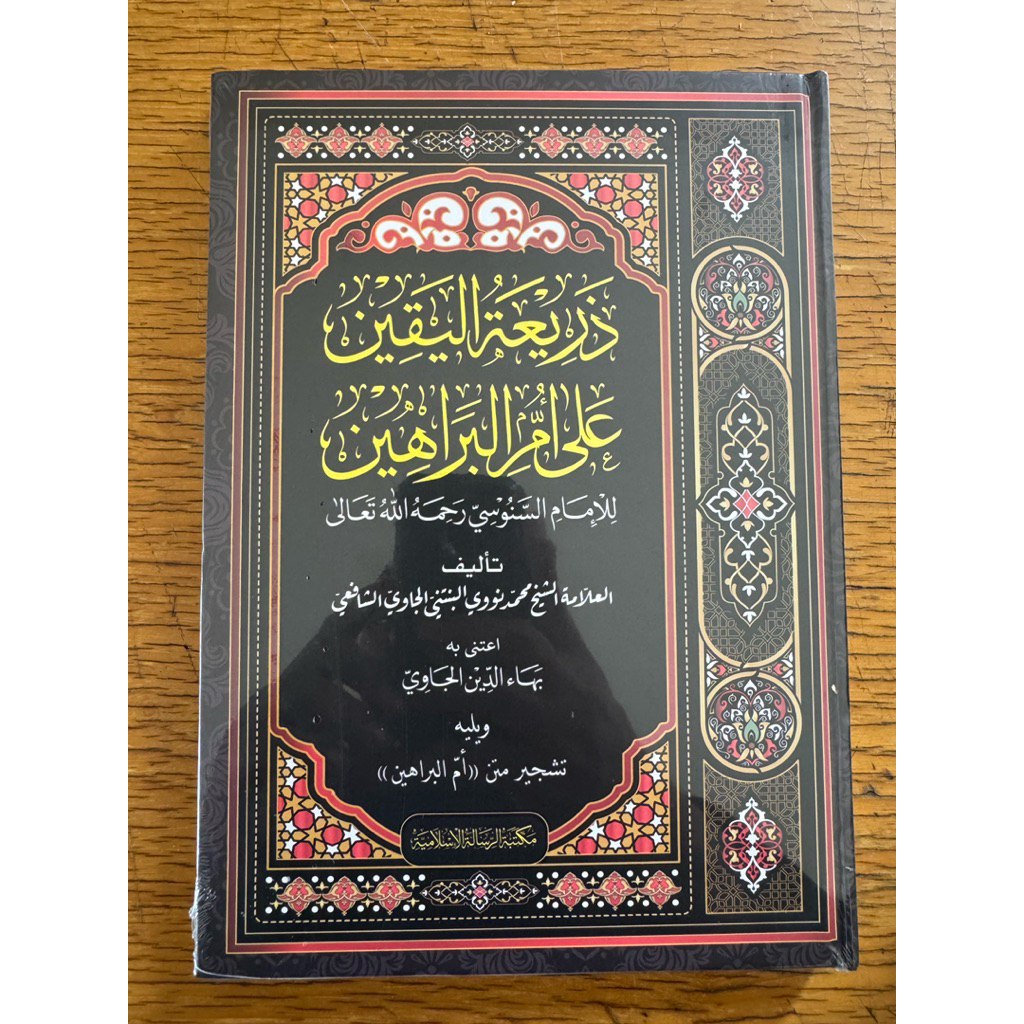 ذَرِيْعَةُ الْيَقِيْنِ
عَلَى أُمِّ الْبَرَاهِيْنِ
لِلْإِمَامِ السَّنُوْسِيّ رَحِمَهُ اللهُ تَعَالَى
تأليف
العلامة الشيخ محمد نووي البنتني الجاوي الشافعي
اعتنى به
بَهَاء الدِّيْن الجَاوِيّ
ويليه
تشجير متن ((أمّ البراهين))
مكتبة الرسالة الإسلامية